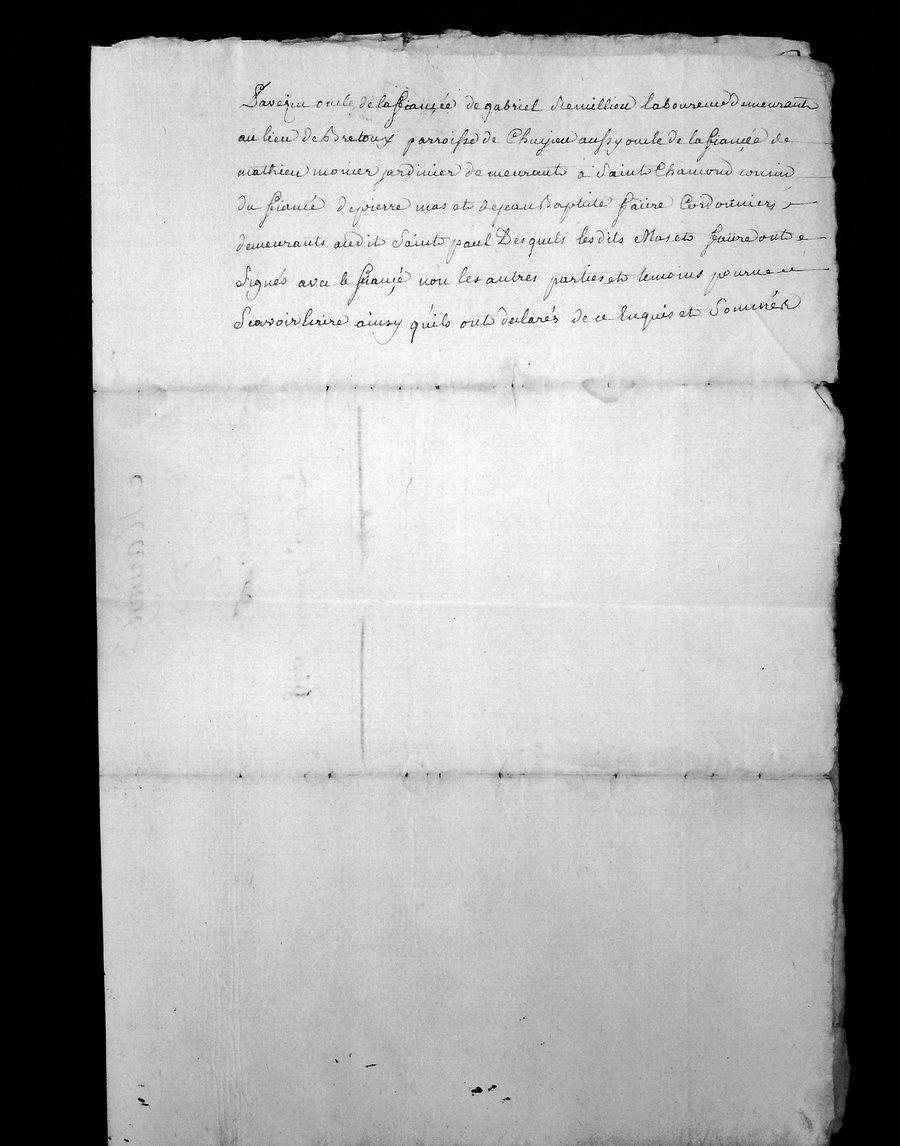 Pavezin oncle de la fiancée de gabriel Remillieu laboureur Demeurant
au lieu de Bretoux parroisse de Chuyeu aussy oncle de la fiancée de
mathieu monier jardinier demeurant à Saint Chamond cousin
du fiancé de pierre mas et de jean Baptiste faüre Cordonniers
demeurants audit Saint paul Desquels lesdits Mas et faüre ont
Signés avec le fiancé non les autres parties et temoins pour ne
Scavoir Ecrire ainsy qu'ils ont declarés de ce Enquis et Sommés